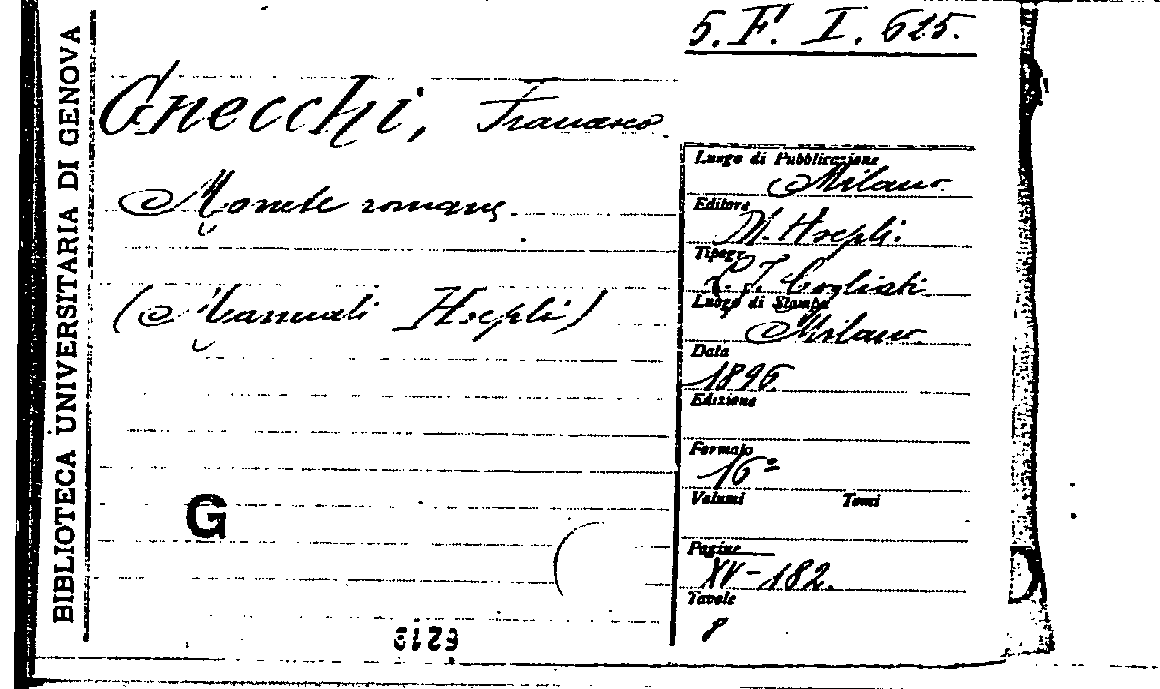 BIBLIOTECA UNIVERSITARIA DI GENOVA
5. F. I. 625.
Gnecchi, Francesco.
Monete romane.
(Manuali Hoepli)
G
Luogo di Pubblicazione
Milano.
Editore
U. Hoepli.
Tipogr.
L. F. Cogliati
Luogo di Stampa
Milano.
Data
1896.
Edizione
Formato
16º
Volumi Tomi
Pagine
XV-182.
Tavole
8